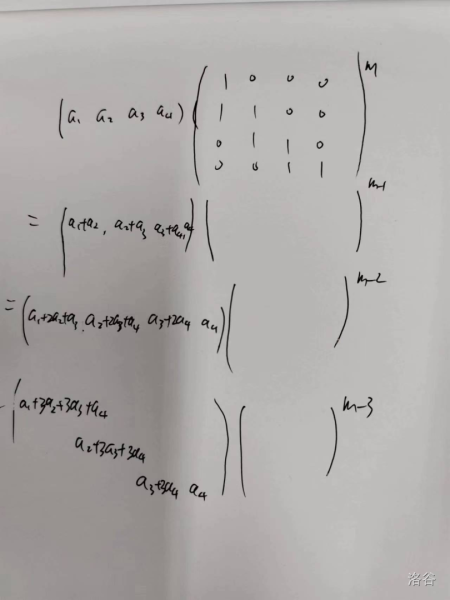 (a₁ a₂ a₃ a₄) ( 1 0 0 0
1 1 0 0
0 1 1 0
0 0 1 1 )^m
= (a₁+a₂, a₂+a₃ a₃+a₄, a₄) ( )^m-1
= (a₁+2a₂+a₃, a₂+2a₃+a₄ a₃+2a₄ a₄) ( )^m-2
- (a₁+3a₂+3a₃+a₄
a₂+3a₃+3a₄
a₃+3a₄ a₄) ( )^m-3
洛谷